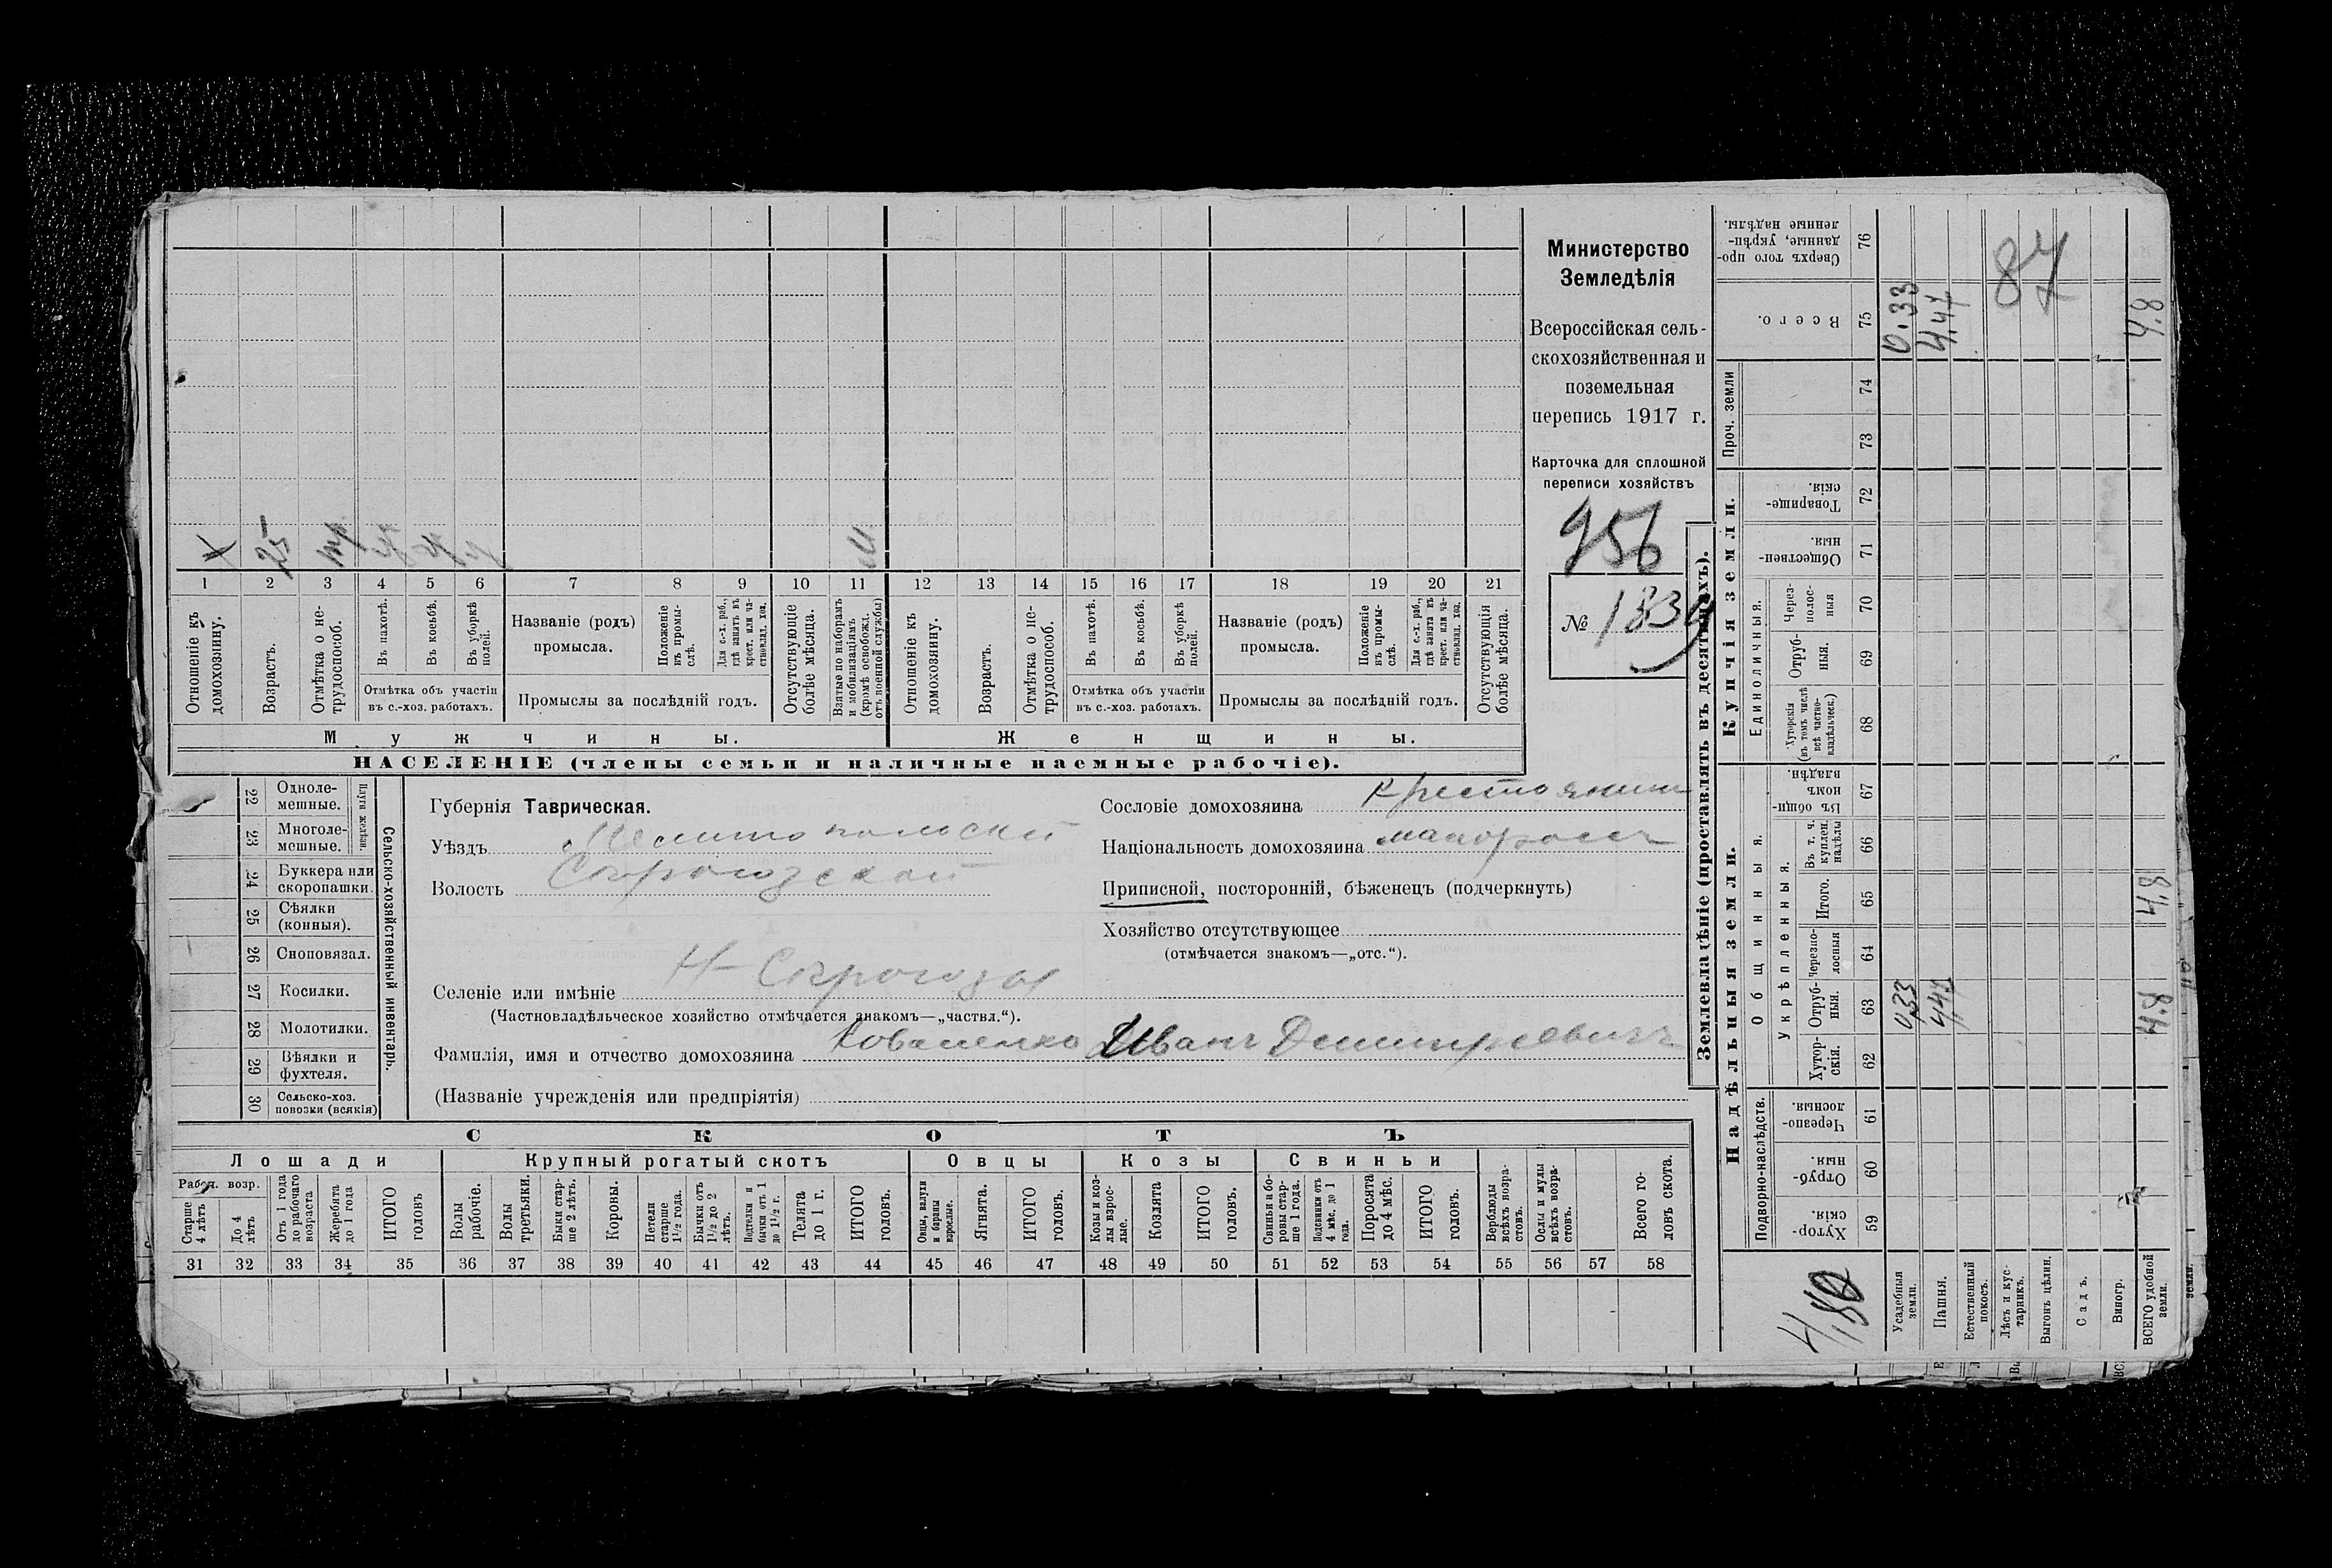 Министерство
Земледѣлія
Всероссійская сель-
скохозяйственная и
поземельная
перепись 1917 г.
Карточка для сплошной
переписи хозяйствъ
956
№ 1839
1 2 3 4 5 6 7 8 9 10 11 12 13 14 15 16 17 18 19 20 21
Отношеніе къ домохозяину.
Возрастъ.
Отмѣтка о не-трудоспособ.
Въ пахотѣ.
Въ косьбѣ.
Въ уборкѣ полей.
Отмѣтка объ участіи
въ с.-хоз. работахъ.
Названіе (родъ)
промысла.
Положеніе въ промы-слѣ.
Для с.-х. раб., гдѣ занятъ въ крест. или ча-стновлад. хоз.
Промыслы за послѣдній годъ.
Отсутствующіе болѣе мѣсяца.
Взятые по наборамъ и мобилизаціямъ (кромѣ освобожд. отъ военной службы)
Отношеніе къ домохозяину.
Возрастъ.
Отмѣтка о не-трудоспособ.
Въ пахотѣ.
Въ косьбѣ.
Въ уборкѣ полей.
Отмѣтка объ участіи
въ с.-хоз. работахъ.
Названіе (родъ)
промысла.
Положеніе въ промы-слѣ.
Для с.-х. раб., гдѣ занята въ крест. или ча-стновлад. хоз.
Промыслы за послѣдній годъ.
Отсутствующія болѣе мѣсяца.
Мужчины.
Женщины.
НАСЕЛЕНІЕ (члены семьи и наличные наемные рабочіе).
22 Одноле-мешные.
23 Многоле-мешные.
Плуги желѣзн.
24 Буккера или скоропашки.
25 Сѣялки (конныя).
26 Сноповязал.
27 Косилки.
28 Молотилки.
29 Вѣялки и фухтеля.
30 Сельско-хоз. повозки (всякія)
Сельско-хозяйственный инвентарь.
Губернія Таврическая.
Уѣздъ Мелитопольскій
Волость Сѣрогозской
Селеніе или имѣніе Н-Сѣрогозы
(Частновладѣльческое хозяйство отмѣчается знакомъ—„частвл.“).
Фамилія, имя и отчество домохозяина Коваленко Иванъ Димитріевичъ
(Названіе учрежденія или предпріятія)
Сословіе домохозяина крестьянинъ
Національность домохозяина малороссъ
Приписной, посторонній, бѣженецъ (подчеркнуть)
Хозяйство отсутствующее
(отмѣчается знакомъ—„отс.“).
СКОТЪ
Лошади
Крупный рогатый скотъ
Овцы
Козы
Свиньи
Рабоч. возр.
Старше 4 лѣтъ
До 4 лѣтъ
Отъ 1 года до рабочаго возраста
Жеребята до 1 года
ИТОГО головъ
Волы рабочіе.
Волы третьяки.
Быки стар-ше 2 лѣтъ.
Коровы.
Нетели старше 1½ года.
Бычки отъ 1½ до 2 лѣтъ.
Подтелки и бычки отъ 1 до 1½ г.
Телята до 1 г.
ИТОГО головъ.
Овцы, валухи и бараны взрослые.
Ягнята.
ИТОГО головъ.
Козы и коз-лы взрос-лые.
Козлята
ИТОГО головъ.
Свиньи и бо-ровы стар-ше 1 года.
Подсвинки отъ 4 мѣс. до 1 года.
Поросята до 4 мѣс.
ИТОГО головъ.
Верблюды всѣхъ возра-стовъ.
Ослы и мулы всѣхъ возра-стовъ.
Всего го-ловъ скота.
31 32 33 34 35 36 37 38 39 40 41 42 43 44 45 46 47 48 49 50 51 52 53 54 55 56 57 58
Землевладѣніе (проставлять въ десятинахъ).
Купчія земли.
Надѣльныя земли.
Сверхъ того про-данные, укрѣп-ленные надѣлы. 76
Всего. 75
0,33
87
4.8
Проч. земли
74
73
Товарище-скія. 72
Обществен-ныя. 71
Единоличныя.
Через-полос-ныя 70
Отруб-ныя. 69
Хуторскія (въ томъ числѣ всѣ частно-владѣльческ.) 68
Общинныя.
Въ общи-номъ владѣн. 67
Укрѣпленныя.
Въ т. ч. куплен. надѣлы 66
Итого. 65
4,8
Черезпо-лосныя 64
Отруб-ныя. 63
0,33
4,47
4.8
Хутор-скія. 62
Подворно-наслѣдств.
Черезпо-лосныя. 61
Отруб-ныя. 60
Хутор-скія. 59
4,80
Усадебныя земли.
Пашня.
Естественный покосъ.
Лѣсъ и кус-тарникъ.
Выгонъ цѣлин.
Садъ.
Виногр.
ВСЕГО удобной земли.